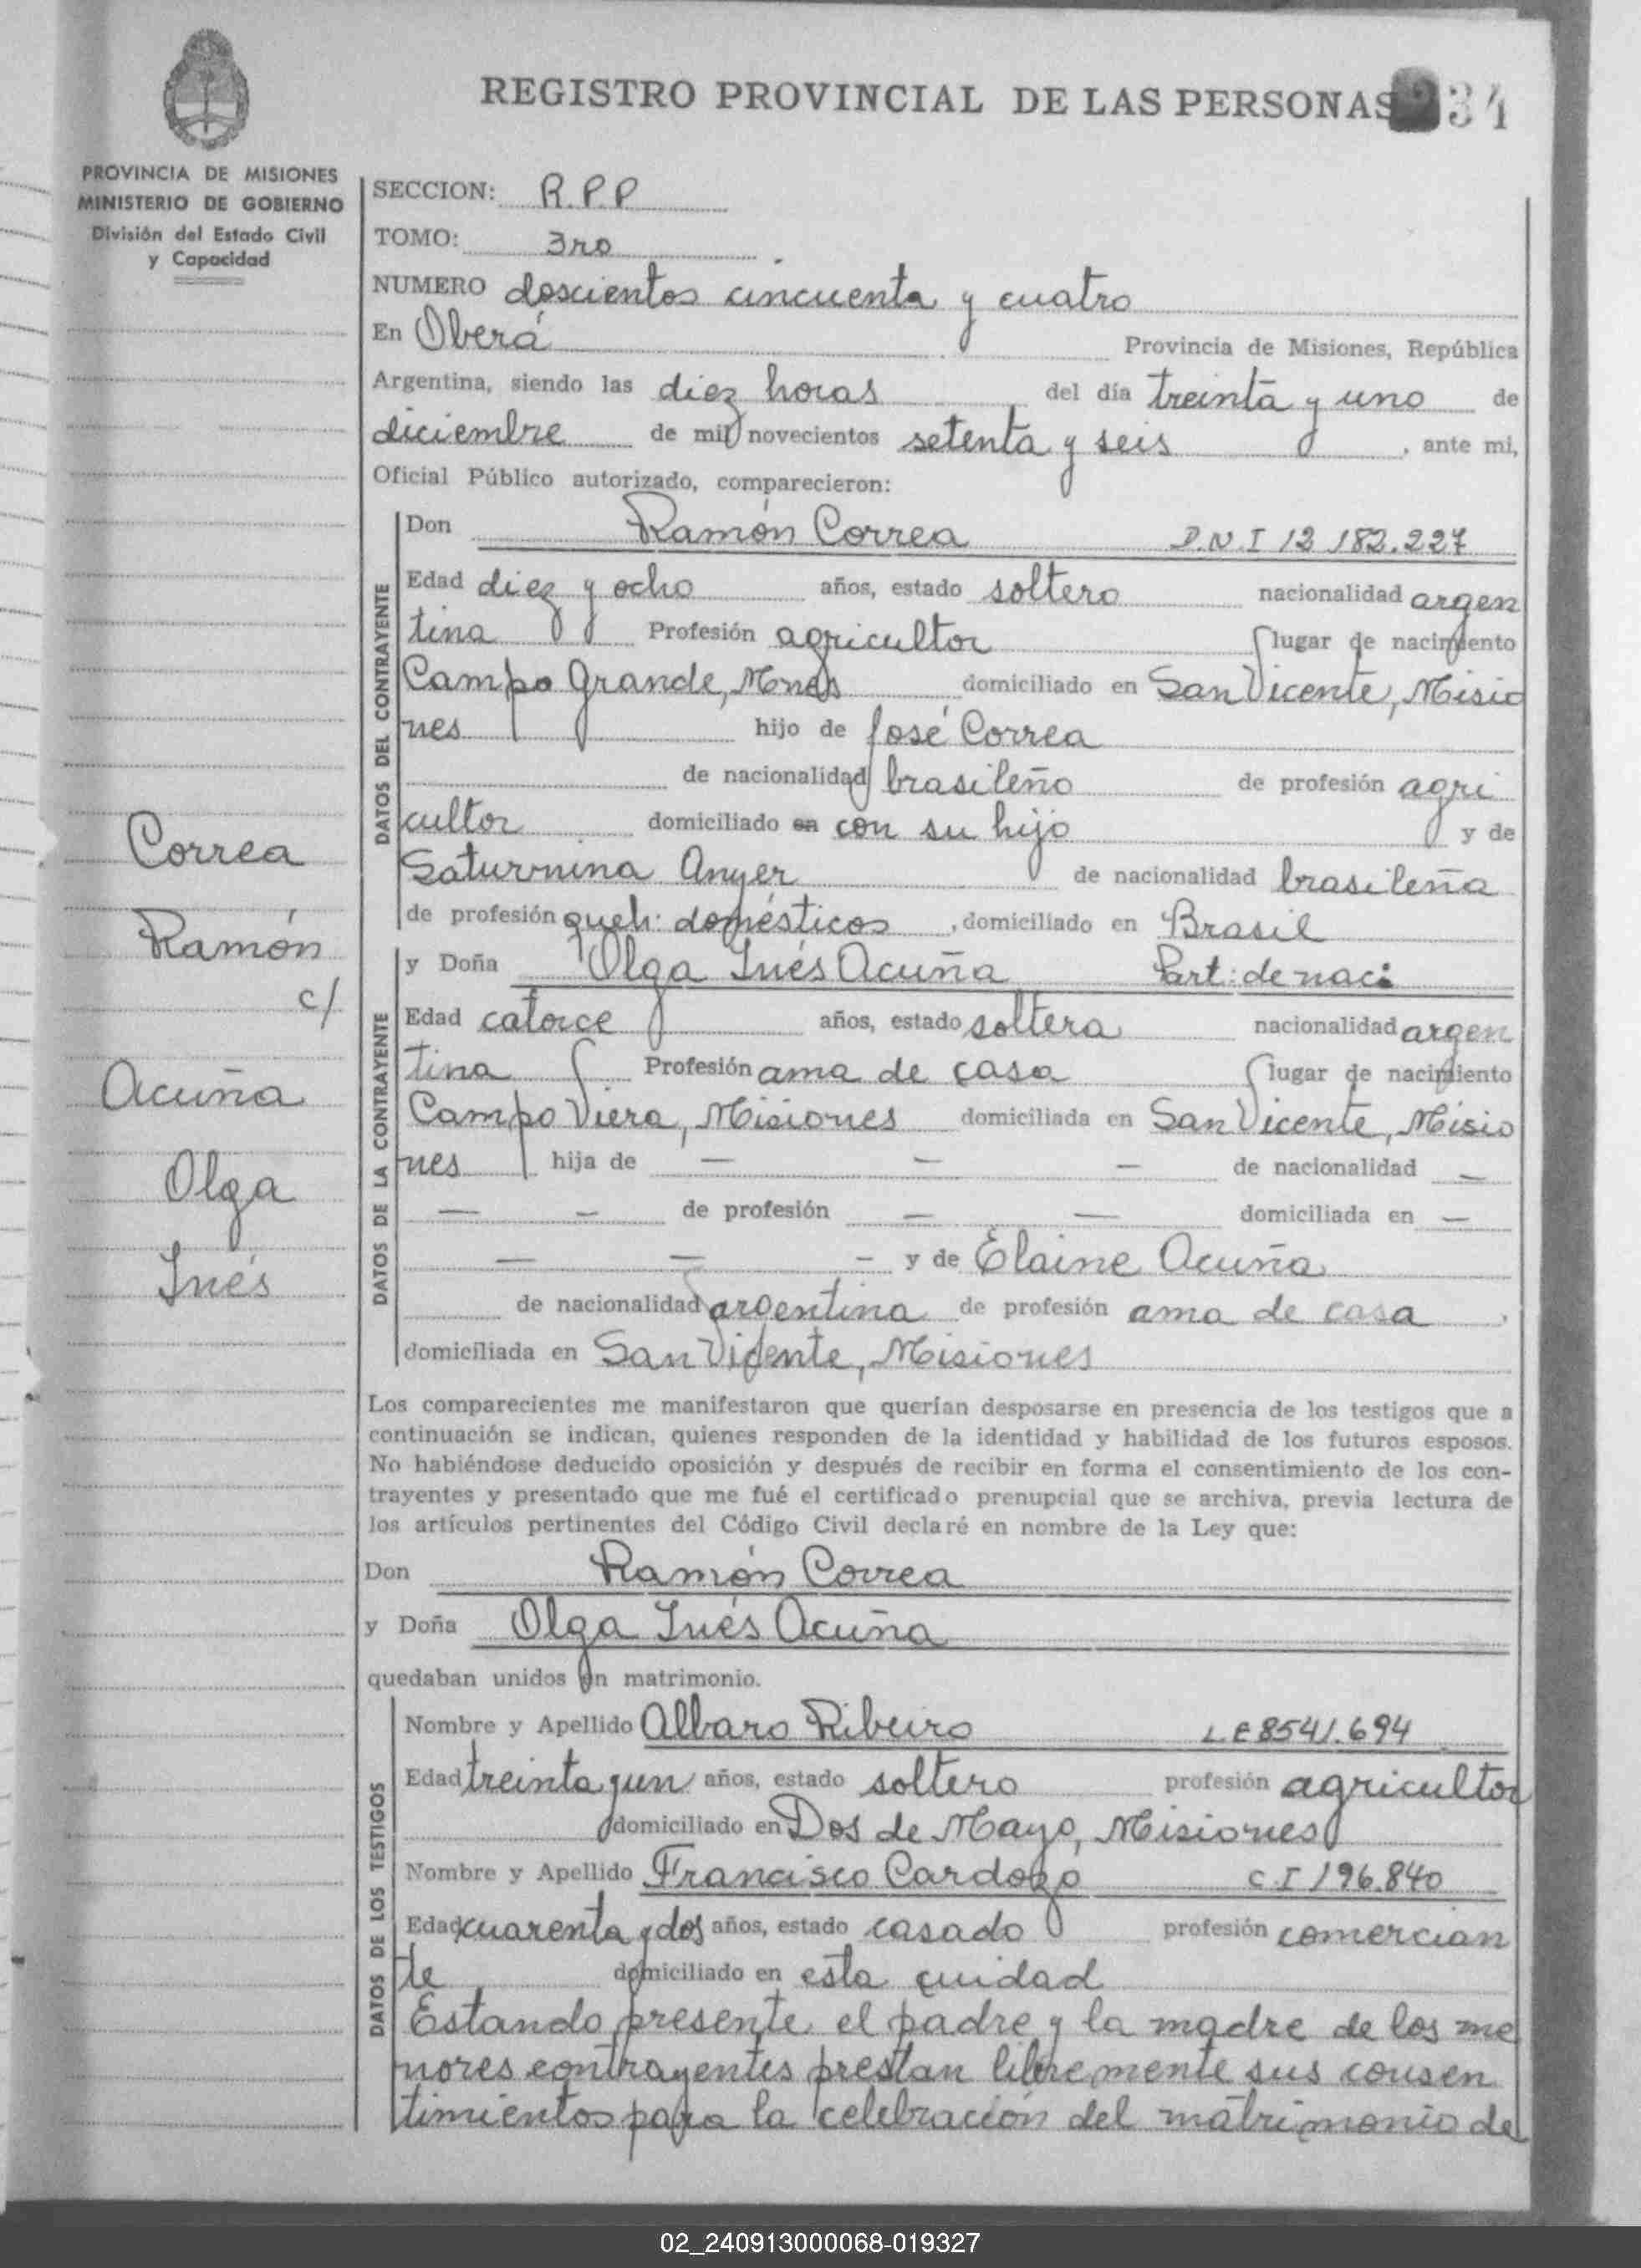 REGISTRO PROVINCIAL DE LAS PERSONAS 34
PROVINCIA DE MISIONES
MINISTERIO DE GOBIERNO
División del Estado Civil
y Capacidad
SECCION: R.P.P
TOMO: 3ro
NUMERO doscientos cincuenta y cuatro
En Oberá Provincia de Misiones, República
Argentina, siendo las diez horas del día treinta y uno de
diciembre de mil novecientos setenta y seis, ante mi,
Oficial Público autorizado, comparecieron:
DATOS DEL CONTRAYENTE
Don Ramón Correa D.N.I 12 182.227
Edad diez y ocho años, estado soltero nacionalidad argen
tina Profesión agricultor lugar de nacimiento
Campo Grande, Mnes domiciliado en San Vicente, Misio
nes hijo de José Correa
de nacionalidad brasileño de profesión agri
cultor domiciliado en con su hijo y de
Saturnina Anyer de nacionalidad brasileña
de profesión queh: domésticos, domiciliado en Brasil
Correa
Ramón
c/
Acuña
Olga
Inés
DATOS DE LA CONTRAYENTE
y Doña Olga Inés Acuña Part: de naci
Edad catorce años, estado soltera nacionalidad argen
tina Profesión ama de casa lugar de nacimiento
Campo Viera, Misiones domiciliada en San Vicente, Misio
nes hija de — — — de nacionalidad —
— — de profesión — — domiciliada en —
— — — y de Elaine Acuña
de nacionalidad argentina de profesión ama de casa,
domiciliada en San Vicente, Misiones
Los comparecientes me manifestaron que querían desposarse en presencia de los testigos que a
continuación se indican, quienes responden de la identidad y habilidad de los futuros esposos.
No habiéndose deducido oposición y después de recibir en forma el consentimiento de los con-
trayentes y presentado que me fué el certificado prenupcial que se archiva, previa lectura de
los artículos pertinentes del Código Civil declaré en nombre de la Ley que:
Don Ramón Correa
y Doña Olga Inés Acuña
quedaban unidos en matrimonio.
DATOS DE LOS TESTIGOS
Nombre y Apellido Albaro Ribeiro L E 8541.694
Edad treinta y un años, estado soltero profesión agricultor
domiciliado en Dos de Mayo, Misiones
Nombre y Apellido Francisco Cardozo C.I 196.840
Edad cuarenta y dos años, estado casado profesión comercian
te domiciliado en esta ciudad
Estando presente el padre y la madre de los me
nores contrayentes prestan libremente sus consen
timientos para la celebración del matrimonio de
02_240913000068-019327